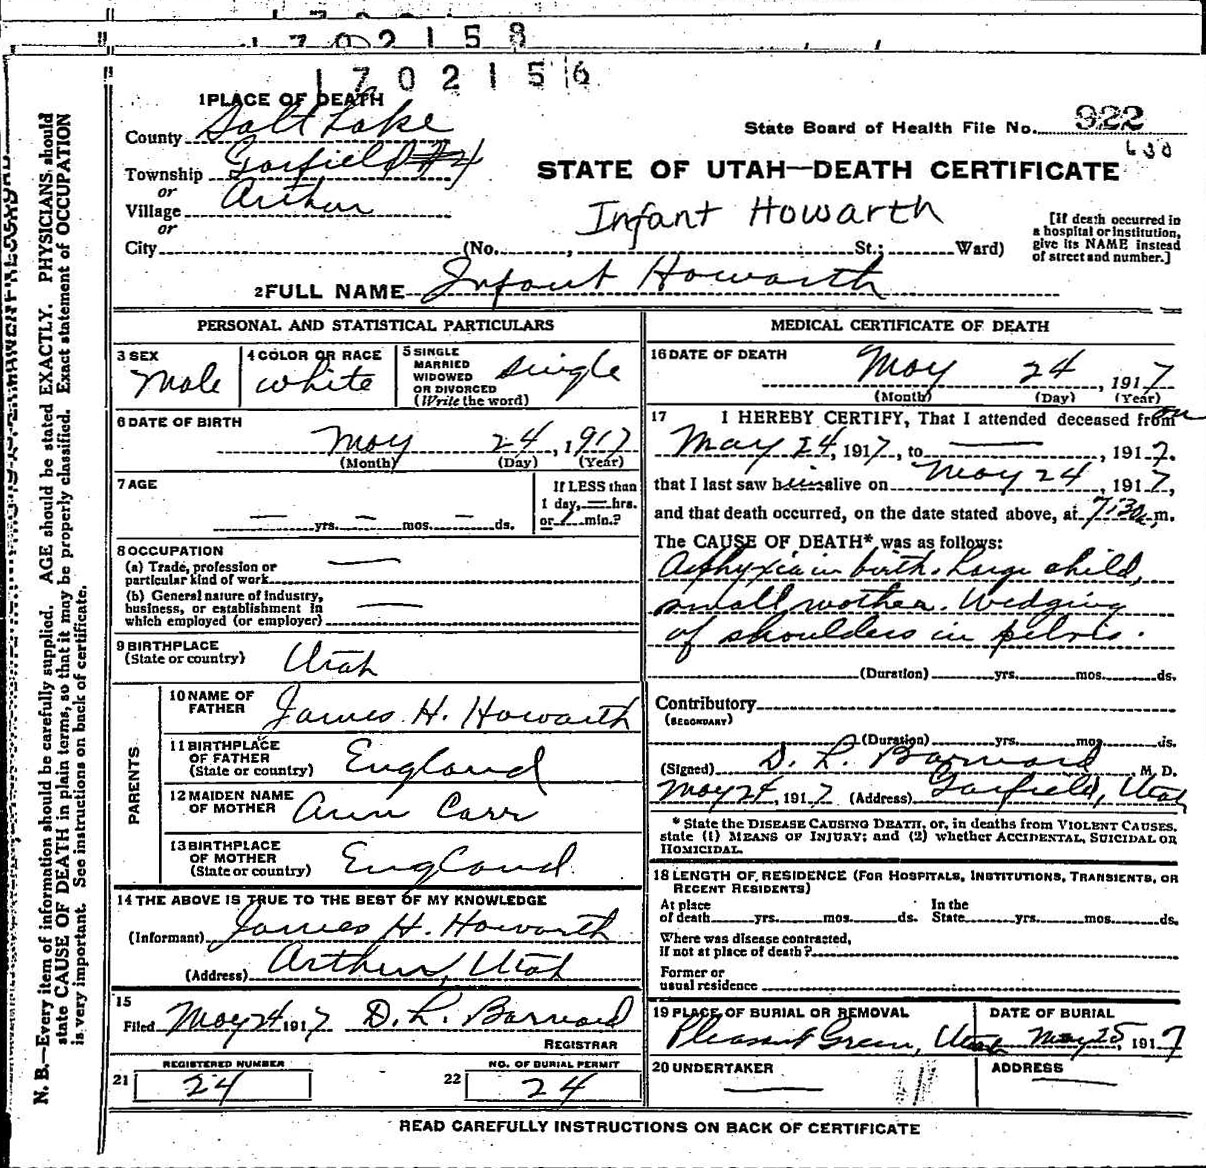 1702158
1702156
1 PLACE OF DEATH
County Salt Lake
State Board of Health File No. 922
Township Garfield #4
or
Village Arthur
or
STATE OF UTAH—DEATH CERTIFICATE
Infant Howarth
City (No. , St.; Ward)
[If death occurred in
a hospital or institution,
give its NAME instead
of street and number.]
2 FULL NAME Infant Howarth
PERSONAL AND STATISTICAL PARTICULARS
3 SEX
Male
4 COLOR OR RACE
White
5 SINGLE
MARRIED
WIDOWED
OR DIVORCED
(Write the word)
Single
6 DATE OF BIRTH
May 24, 1917
(Month) (Day) (Year)
7 AGE
— yrs. — mos. — ds.
If LESS than
1 day, — hrs.
or 1 min.?
8 OCCUPATION
(a) Trade, profession or
particular kind of work —
(b) General nature of industry,
business, or establishment in
which employed (or employer) —
9 BIRTHPLACE
(State or country) Utah
PARENTS
10 NAME OF
FATHER James H. Howarth
11 BIRTHPLACE
OF FATHER
(State or country) England
12 MAIDEN NAME
OF MOTHER Ann Carr
13 BIRTHPLACE
OF MOTHER
(State or country) England
14 THE ABOVE IS TRUE TO THE BEST OF MY KNOWLEDGE
(Informant) James H. Howarth
(Address) Arthur, Utah
15
Filed May 24 1917 D. L. Barnard
REGISTRAR
REGISTERED NUMBER
21 24
NO. OF BURIAL PERMIT
22 24
MEDICAL CERTIFICATE OF DEATH
16 DATE OF DEATH
May 24, 1917
(Month) (Day) (Year)
17 I HEREBY CERTIFY, That I attended deceased from on
May 24, 1917, to — , 1917.
that I last saw him alive on May 24, 1917,
and that death occurred, on the date stated above, at 7:30 a m.
The CAUSE OF DEATH* was as follows:
Asphyxia in birth. Large child,
small mother. Wedging
of shoulders in pelvis.
(Duration) yrs. mos. ds.
Contributory
(SECONDARY)
(Duration) yrs. mos. ds.
(Signed) D. L. Barnard M. D.
May 24, 1917 (Address) Garfield, Utah
* State the DISEASE CAUSING DEATH, or, in deaths from VIOLENT CAUSES,
state (1) MEANS OF INJURY; and (2) whether ACCIDENTAL, SUICIDAL OR
HOMICIDAL.
18 LENGTH OF RESIDENCE (FOR HOSPITALS, INSTITUTIONS, TRANSIENTS, OR
RECENT RESIDENTS)
At place
of death yrs. mos. ds.
In the
State yrs. mos. ds.
Where was disease contracted,
if not at place of death?
Former or
usual residence
19 PLACE OF BURIAL OR REMOVAL
Pleasant Green, Utah
DATE OF BURIAL
May 25, 1917
20 UNDERTAKER
—
ADDRESS
—
READ CAREFULLY INSTRUCTIONS ON BACK OF CERTIFICATE
N. B.—Every item of information should be carefully supplied. AGE should be stated EXACTLY. PHYSICIANS should
state CAUSE OF DEATH in plain terms, so that it may be properly classified. Exact statement of OCCUPATION
is very important. See instructions on back of certificate.